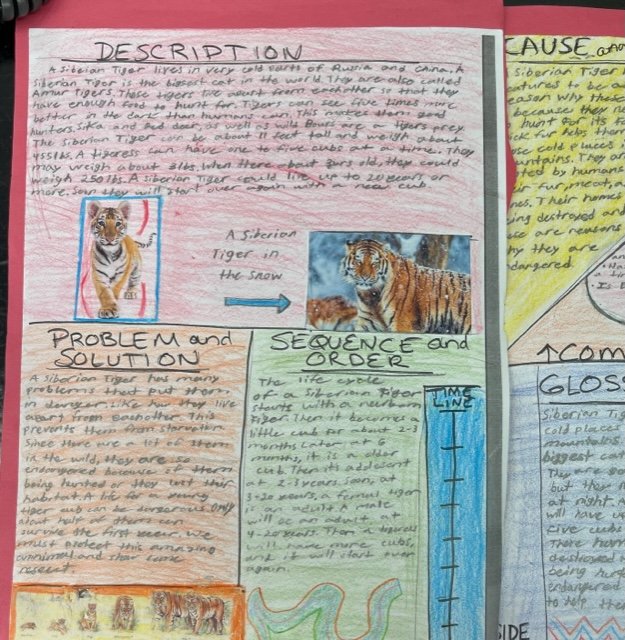 DESCRIPTION
A Siberian Tiger lives in very cold parts of Russia and China. A
Siberian Tiger is the biggest cat in the world. They are also called
Amur Tigers. These tigers live apart from eachother so that they
have enough food to hunt for. Tigers can see five times more
better in the dark than humans can. This makes them good
hunters. Sika and Red deer, as well as wild Boars are a tigers prey.
The Siberian Tiger can be about feet tall and weigh about
455lbs. A tigeress can have one to five cubs at a time. They
may weigh about 3lbs. When there about 3yrs old, they could
weigh 250lbs. A siberian Tiger could live up to 20 years or
more. Soon they will start over again with a new cub.
A Siberian
Tiger in
the snow
PROBLEM and
SOLUTION
A Siberian Tiger has many
problems that put them
in danger. Like how they live
apart from eachother. This
prevents them from starvation
Since there are a lot of them
in the wild, they are so
endangered because of them
being hunted or they lost their
habitat. A life for a young
tiger cub can be dangerous only
about half of them can
survive the first year. We
must protect this amazing
annimal and their
SEQUENCE and
ORDER
The life cycle
of a Siberian Tiger
starts with a newborn
Tiger. Then it becomes a
little cub at about 2-3
months. Later, at 6
months, it is a older
cub. Then its adolesent
at 2-3 years. Soon, at
3-20 years, a female tiger
is an adult. A male
will be an adult at
4-20 years. Then a tigeress
will have more cubs,
and it will start over
again.
TIME
LINE
CAUSE and
Siberian Tiger
to be a
reason why these
because they
hunt for its
fur helps them
cold places
They are
by humans
fur, meat, a
Their homes
being destroyed and
are reasons
why they are
endangered.
↑COM
GLOSS
Siberian Tig
cold places
mountains
biggest cat
They are go
but they
at night. A
will have u
five cubs
There hom
destroyed
being hun
endangered
to help the
SIDE